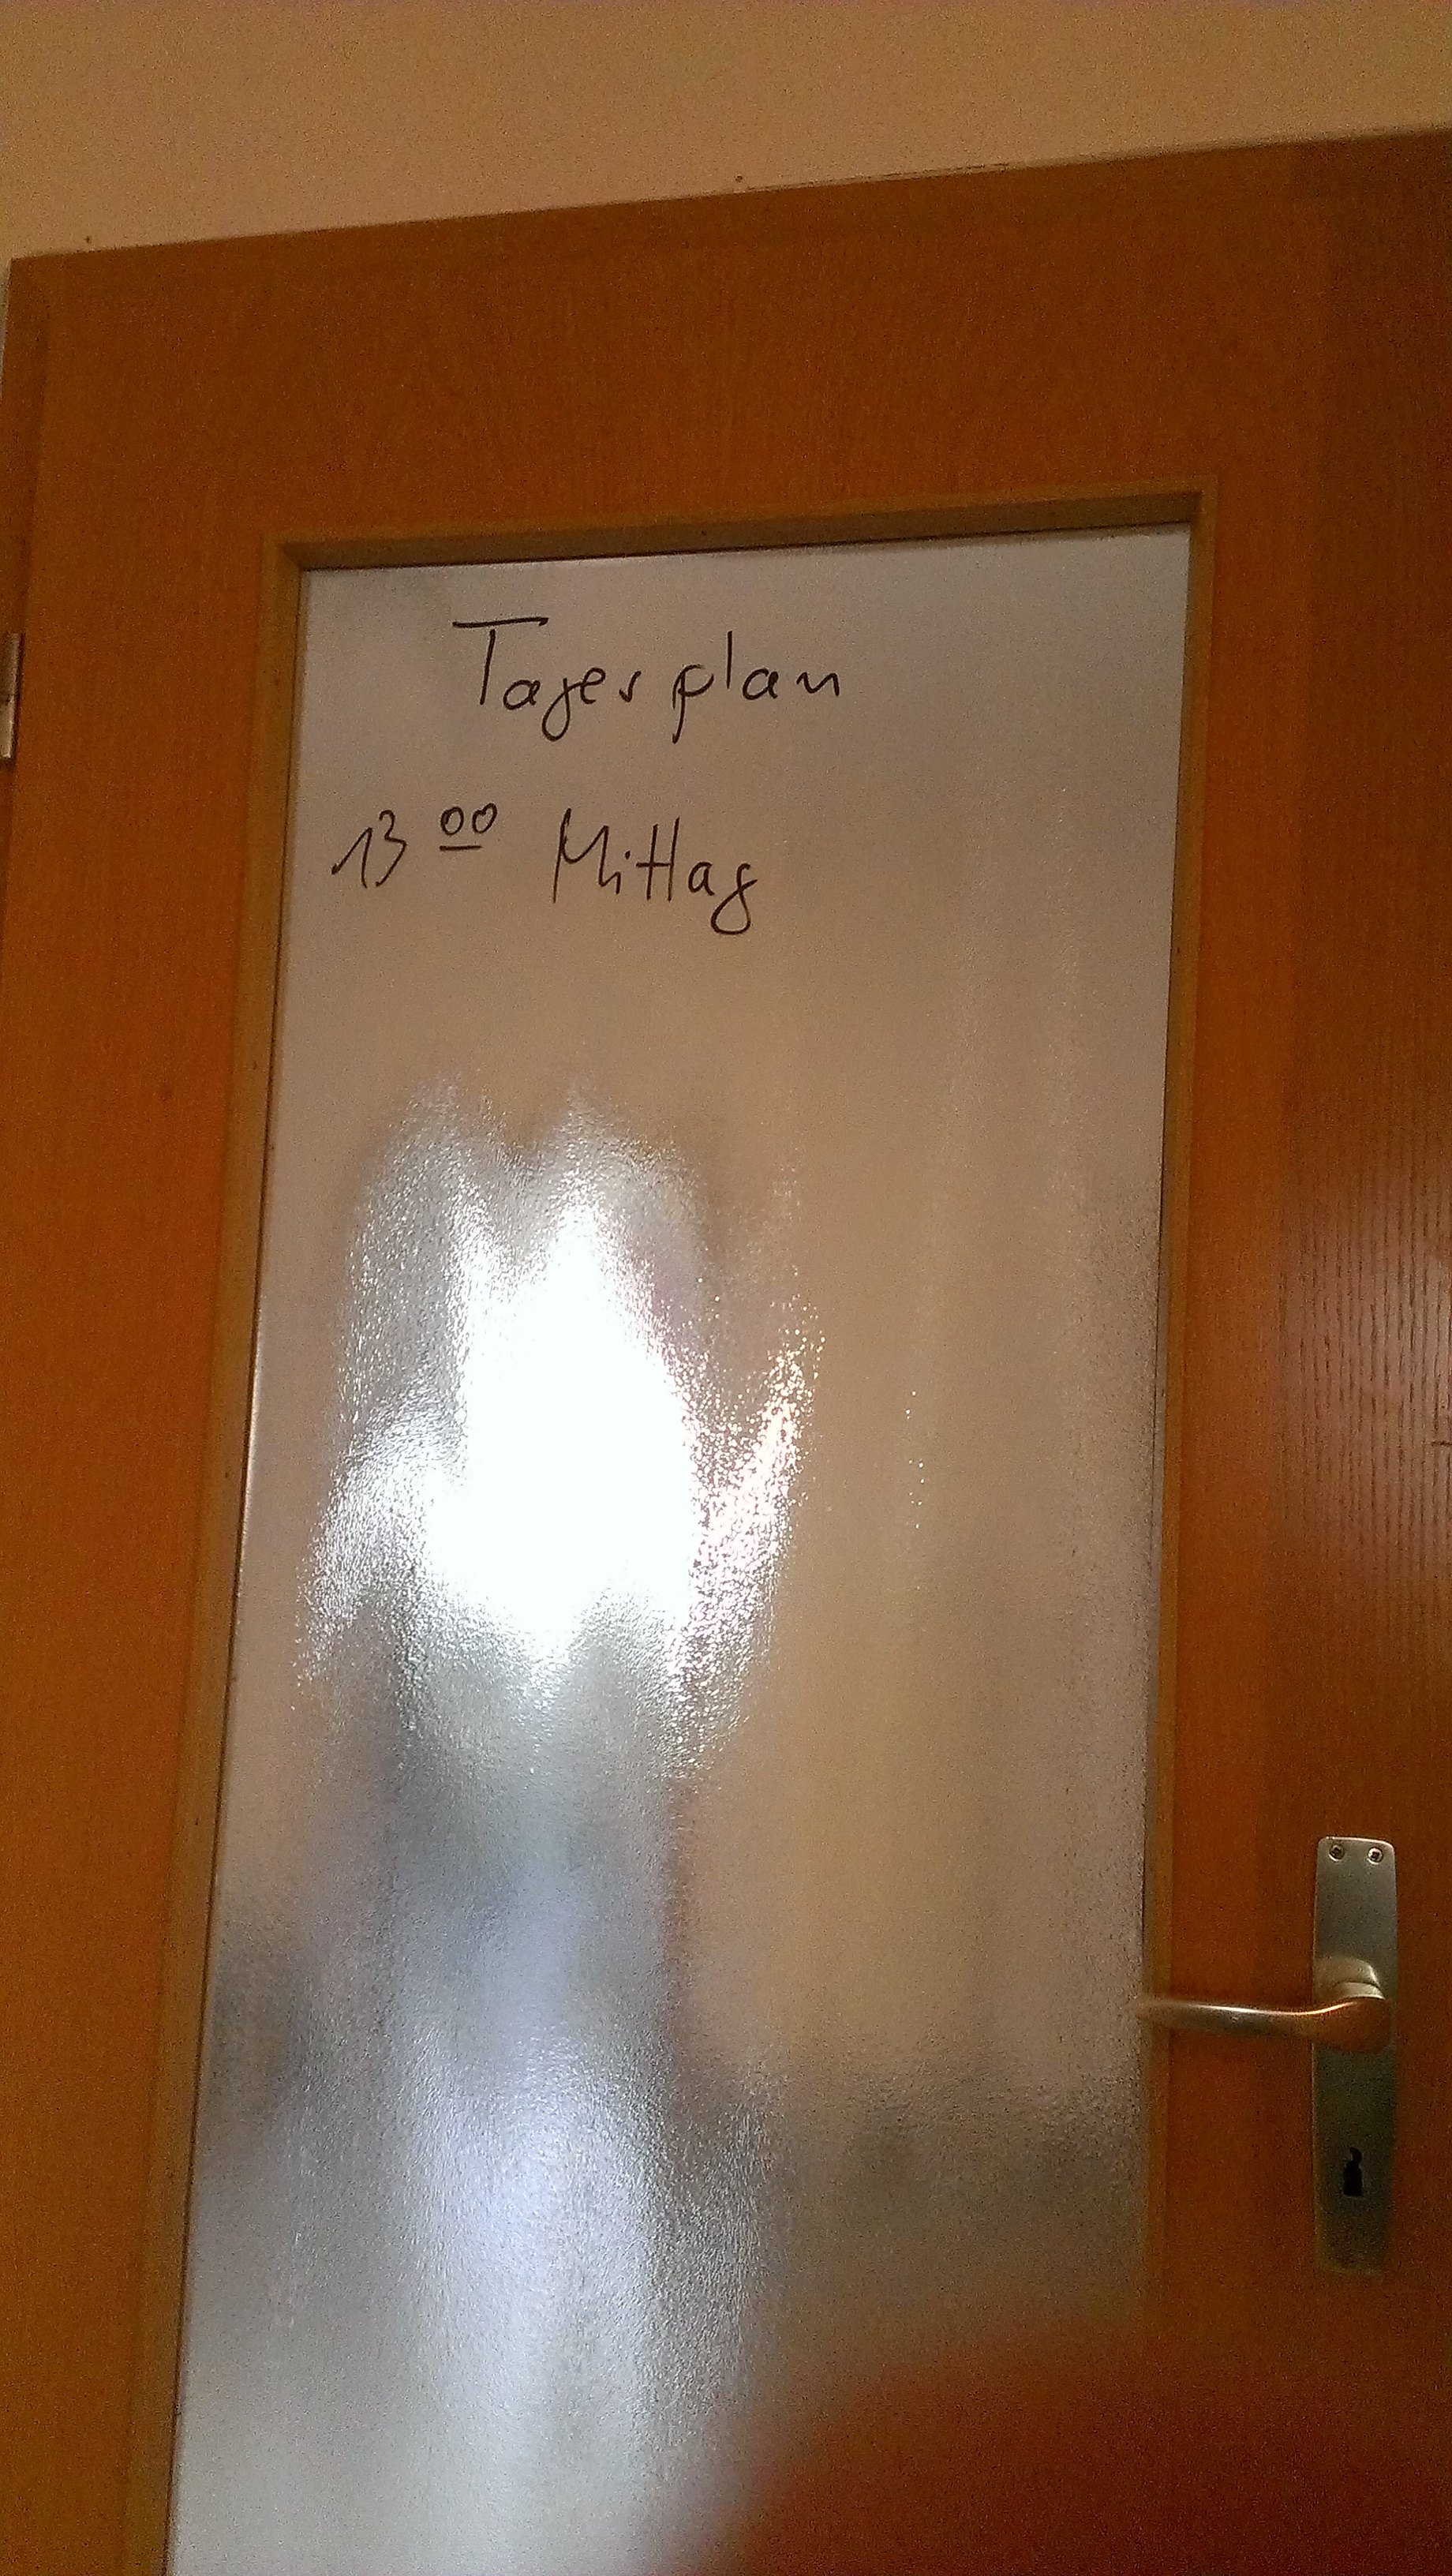 Tagesplan
13 00 Mittag